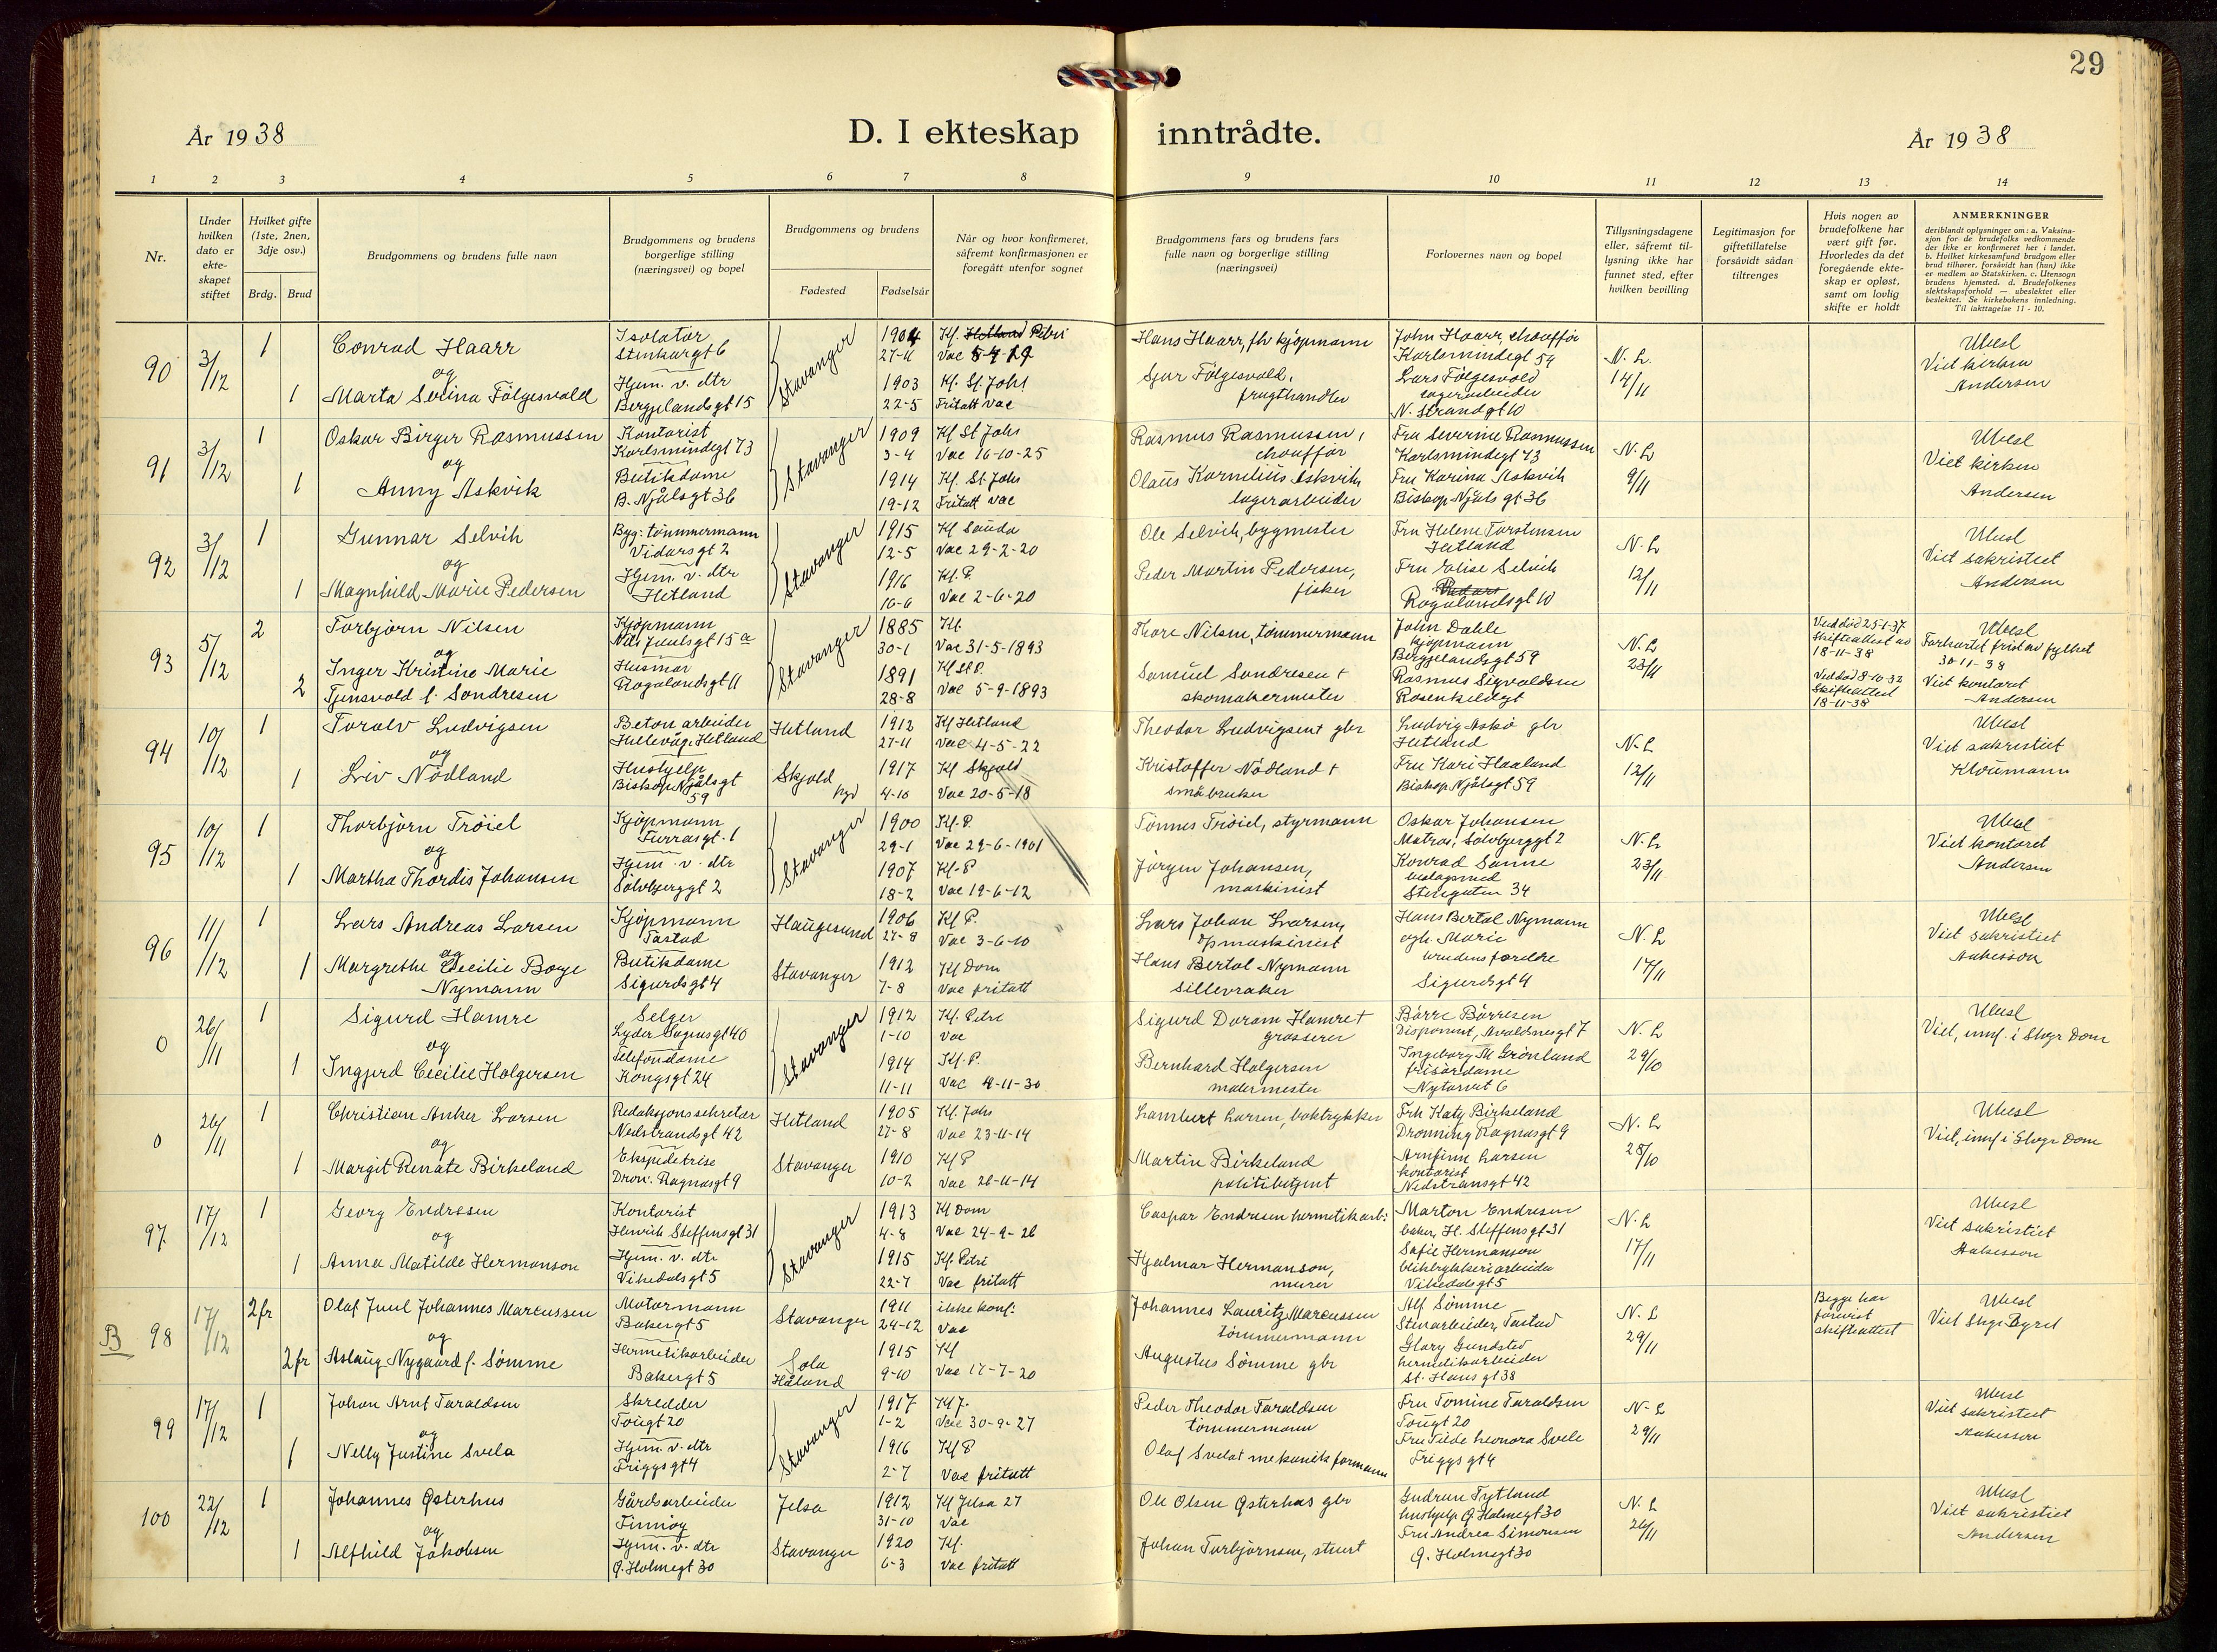 29
År 1938
D. I ekteskap inntrådte.
År 1938
1 2 3 4 5 6 7 8 9 10 11 12 13 14
Nr.
Under hvilken dato er ekteskapet stiftet
Hvilket gifte (1ste, 2nen, 3dje osv.)
Brdg. Brud
Brudgommens og brudens fulle navn
Brudgommens og brudens borgerlige stilling (næringsvei) og bopel
Brudgommens og brudens
Fødested Fødselsår
Når og hvor konfirmeret, såfremt konfirmasjonen er foregått utenfor sognet
Brudgommens fars og brudens fars fulle navn og borgerlige stilling (næringsvei)
Forlovernes navn og bopel
Tillysningsdagene eller, såfremt tillysning ikke har funnet sted, efter hvilken bevilling
Legitimasjon for giftetillatelse forsåvidt sådan tiltrenges
Hvis nogen av brudefolkene har vært gift før. Hvorledes da det foregående ekteskap er opløst, samt om lovlig skifte er holdt
ANMERKNINGER
deriblandt oplysninger om: a. Vaksinasjon for de brudefolks vedkommende der ikke er konfirmeret her i landet. b. Hvilket kirkesamfund brudgom eller brud tilhører, forsåvidt han (hun) ikke er medlem av Statskirken. c. Utensogn brudens hjemsted. d. Brudefolkenes slektskapsforhold — ubeslektet eller beslektet. Se kirkebokens innledning. Til iakttagelse 11 - 10.
90 3/12 1 Conrad Haarr
og
1 Marta Serina Fölgesvold
Isolatör
Stenkargt 6
Hjem. v. dtr
Bergelandsgt 15
Stavanger
1904
27-11
1903
22-5
Kf. Hetland Petri
Vac 5-7-19
Kf. St. Johs
Fritatt vac
Hans Haarr, fhv kjöpmann
Sjur Fölgesvold,
frugthandler
John Haarr, choufför
Karlsmindegt 54
Lars Fölgesvold
lagerarbeider
N. Strandgt 10
N. L.
14/11
Ubesl
Viet kirken
Andersen
91 3/12 1 Oskar Birger Rasmussen
og
1 Anny Askvik
Kontorist
Karlsmindegt 73
Butikdame
B. Njålsgt 36
Stavanger
1909
3-4
1914
19-12
Kf St Johs
Vac 16-10-25
Kf. St. Johs
Fritatt vac
Rasmus Rasmussen,
choufför
Olaus Kornelius Askvik,
lagerarbeider
Fru Severine Rasmussen
Karlsmindegt 73
Fru Karina Askvik
Biskop Njåls gt 36
N. L
9/11
Ubesl
Viet kirken
Andersen
92 3/12 1 Gunnar Selvik
og
1 Magnhild Marie Pedersen
Byg: tömmermann
Vidarsgt 2
Hjem. v. dtr
Hetland
Stavanger
1915
12-5
1916
16-6
Kf Sauda
Vac 29-2-20
Kf. P.
Vac 2-6-20
Ole Selvik, bygmester
Peder Martin Pedersen,
fisker
Fru Helene Torstensen
Hetland
Fru Elise Selvik
Rogalandsgt 10
N. L
12/11
Ubesl
Viet sakristiet
Andersen
93 5/12 2 Torbjörn Nilsen
og
2 Inger Kristine Marie
Tjensvold f. Sondresen
Kjöpmann
Nils Juulsgt 15 a
Husmor
Rogalandsgt 11
Stavanger
1885
30-1
1891
28-8
Kf.
Vac 31-5-1893
Kf St P.
Vac 5-9-1893
Thore Nilsen, tömmermann
Samuel Sondresen +
skomakermester
John Dahle
kjöpmann
Bergelandsgt 59
Rasmus Sigvaldsen
Rosenkildegt
N. L
23/11
Ved död 25-1-37
Skifteattest av
18-11-38
Ved död 8-10-32
Skifteattest
18-11-38
Ubesl
Forkortet frist av fylket
30-11-38
Viet kontoret
Andersen
94 10/12 1 Toralv Ludvigsen
og
1 Liv Nödland
Beton arbeider
Hillevåg, Hetland
Hushjelp
Biskop Njålsgt
59
Hetland
Skjold
1912
27-11
1917
4-10
Kf Hetland
Vac 4-5-22
Kf Skjold
Vac 20-5-18
Theodor Ludvigsen + gbr
Kristoffer Nödland +
småbruker
Ludvig Askö gbr
Hetland
Fru Kari Haaland
Biskop Njålsgt 59
N. L
12/11
Ubesl
Viet sakristiet
95 10/12 1 Thorbjörn Tröiel
og
1 Martha Thordis Johansen
Kjöpmann
Furrasgt. 1
Hjem. v. dtr
Sölvbergt 2
Stavanger
1900
29-1
1907
18-2
Kf. P.
Vac 29-6-1901
Kf. P
Vac 19-6-12
Tönnes Tröiel, styrmann
Jörgen Johansen,
maskinist
Oskar Johansen
Matros, Sölvberggt 2
Konrad Sanne
beslagsmed
Stengaten 34
N. L
23/11
Ubesl
Viet kontoret
Andersen
96 11/12 1 Lars Andreas Larsen
og
1 Margrethe Cecilie Boye
Nymann
Kjöpmann
Tastad
Butikdame
Sigurdsgt 4
Haugesund
Stavanger
1906
27-8
1912
7-8
Kf P.
Vac 3-6-10
Kf Dom
Vac fritatt
Lars Johan Larsen,
opmaskinist
Hans Bertal Nymann
sillevraker
Hans Bertal Nymann
og h. Marie
brudens foreldre
Sigurdsgt 4
N. L
17/11
Ubesl
Viet sakristiet
Aakesson
0 26/11 1 Sigurd Hamre
og
1 Ingjerd Cecilie Holgersen
Selger
Lyder Sagensgt 40
Telefondame
Kongsgt 24
Stavanger
1912
1-10
1914
11-11
Kf. Petri
Vac
Kf. P.
Vac 4-11-30
Sigurd Doram Hamre +
grosserer
Bernhard Holgersen
malermester
Börre Börresen
Disponent, Avaldsnesgt 7
Ingeborg M Grönlund
frisördame
Nytorvet 6
N. L
29/10
Ubesl
Viet, innf. i Stvgr Dom
0 26/11 1 Christian Anker Larsen
og
1 Margit Renate Birkeland
Redaksjonssekretær
Nedstrandsgt 42
Ekspeditrise
Dron. Ragnasgt 9
Hetland
Stavanger
1905
27-8
1910
10-2
Kf. Johs
Vac 23-11-14
Kf P
Vac 26-11-14
Lambert Larsen, boktrykker
Martin Birkeland
politibetjent
Frk Katy Birkeland
Dronning Ragnasgt 9
Arnfinn Larsen
kontorist
Nedstransgt 42
N. L
28/10
Ubesl
Viet, innf i Stvgr Dom
97 17/12 1 Georg Endresen
og
1 Anna Matilde Hermanson
Kontorist
Henrik Steffensgt 31
Hjem. v. dtr
Vikedalsgt 5
Stavanger
1913
4-8
1915
22-7
Kf Dom
Vac 24-9-26
Kf. Petri
Vac fritatt
Caspar Endresen hermetikarb:
Hjalmar Hermanson,
murer
Marton Endresen
baker, H. Steffensgt 31
Sofie Hermanson
bliktrykkeriarbeider
Vikedalsgt 5
N. L
17/11
Ubesl
Viet sakristiet
Aakesson
B 98 17/12 2 fr Olaf Juul Johannes Marcussen
og
2 fr Aslaug Nygaard f. Sömme
Motormann
Bakergt 5
Hermetikarbeider
Bakergt 5
Stavanger
Sola
Håland
1911
24-12
1915
9-10
ikke konf:
Vac
Kf
Vac 17-7-20
Johannes Lauritz Marcussen
tömmermann
Augustus Sömme gbr
Alf Sömme
Stenarbeider, Tastad
Glory Gundsted
hermetikarbeider
St. Hans gt 38
N. L
29/11
Begge har
forevist
skifteattest
Ubesl
Viet Stvgr Byret
99 17/12 1 Johan Arnt Taraldsen
og
1 Nelly Justine Svela
Skredder
Tougt 20
Hjem. v. dtr
Friggsgt 4
Stavanger
1917
1-2
1916
2-7
Kf J.
Vac 30-9-27
Kf P
Vac fritatt
Peder Theodor Taraldsen
tömmermann
Olaf Svela + mekanikformann
Fru Tomine Taraldsen
Tougt 20
Fru Tilde Leonora Svele
Friggsgt 4
N. L
29/11
Ubesl
Viet sakristiet
Aakesson
100 22/12 1 Johannes Østerhus
og
1 Alfhild Jakobsen
Gårdsarbeider
Finnöy
Hjem. v. dtr
Q. Holmegt 30
Jelsa
Stavanger
1912
31-10
1920
6-3
Kf Jelsa 27
Vac
Kf.
Vac fritatt
Ole Olsen Østerhus gbr
Johan Torbjörnsen, stuert
Gudrun Tytland
hushjelp Q Holmegt 30
Fru Andrea Simonsen
Q. Holmegt 30
N. L
26/11
Ubesl
Viet sakristiet
Andersen